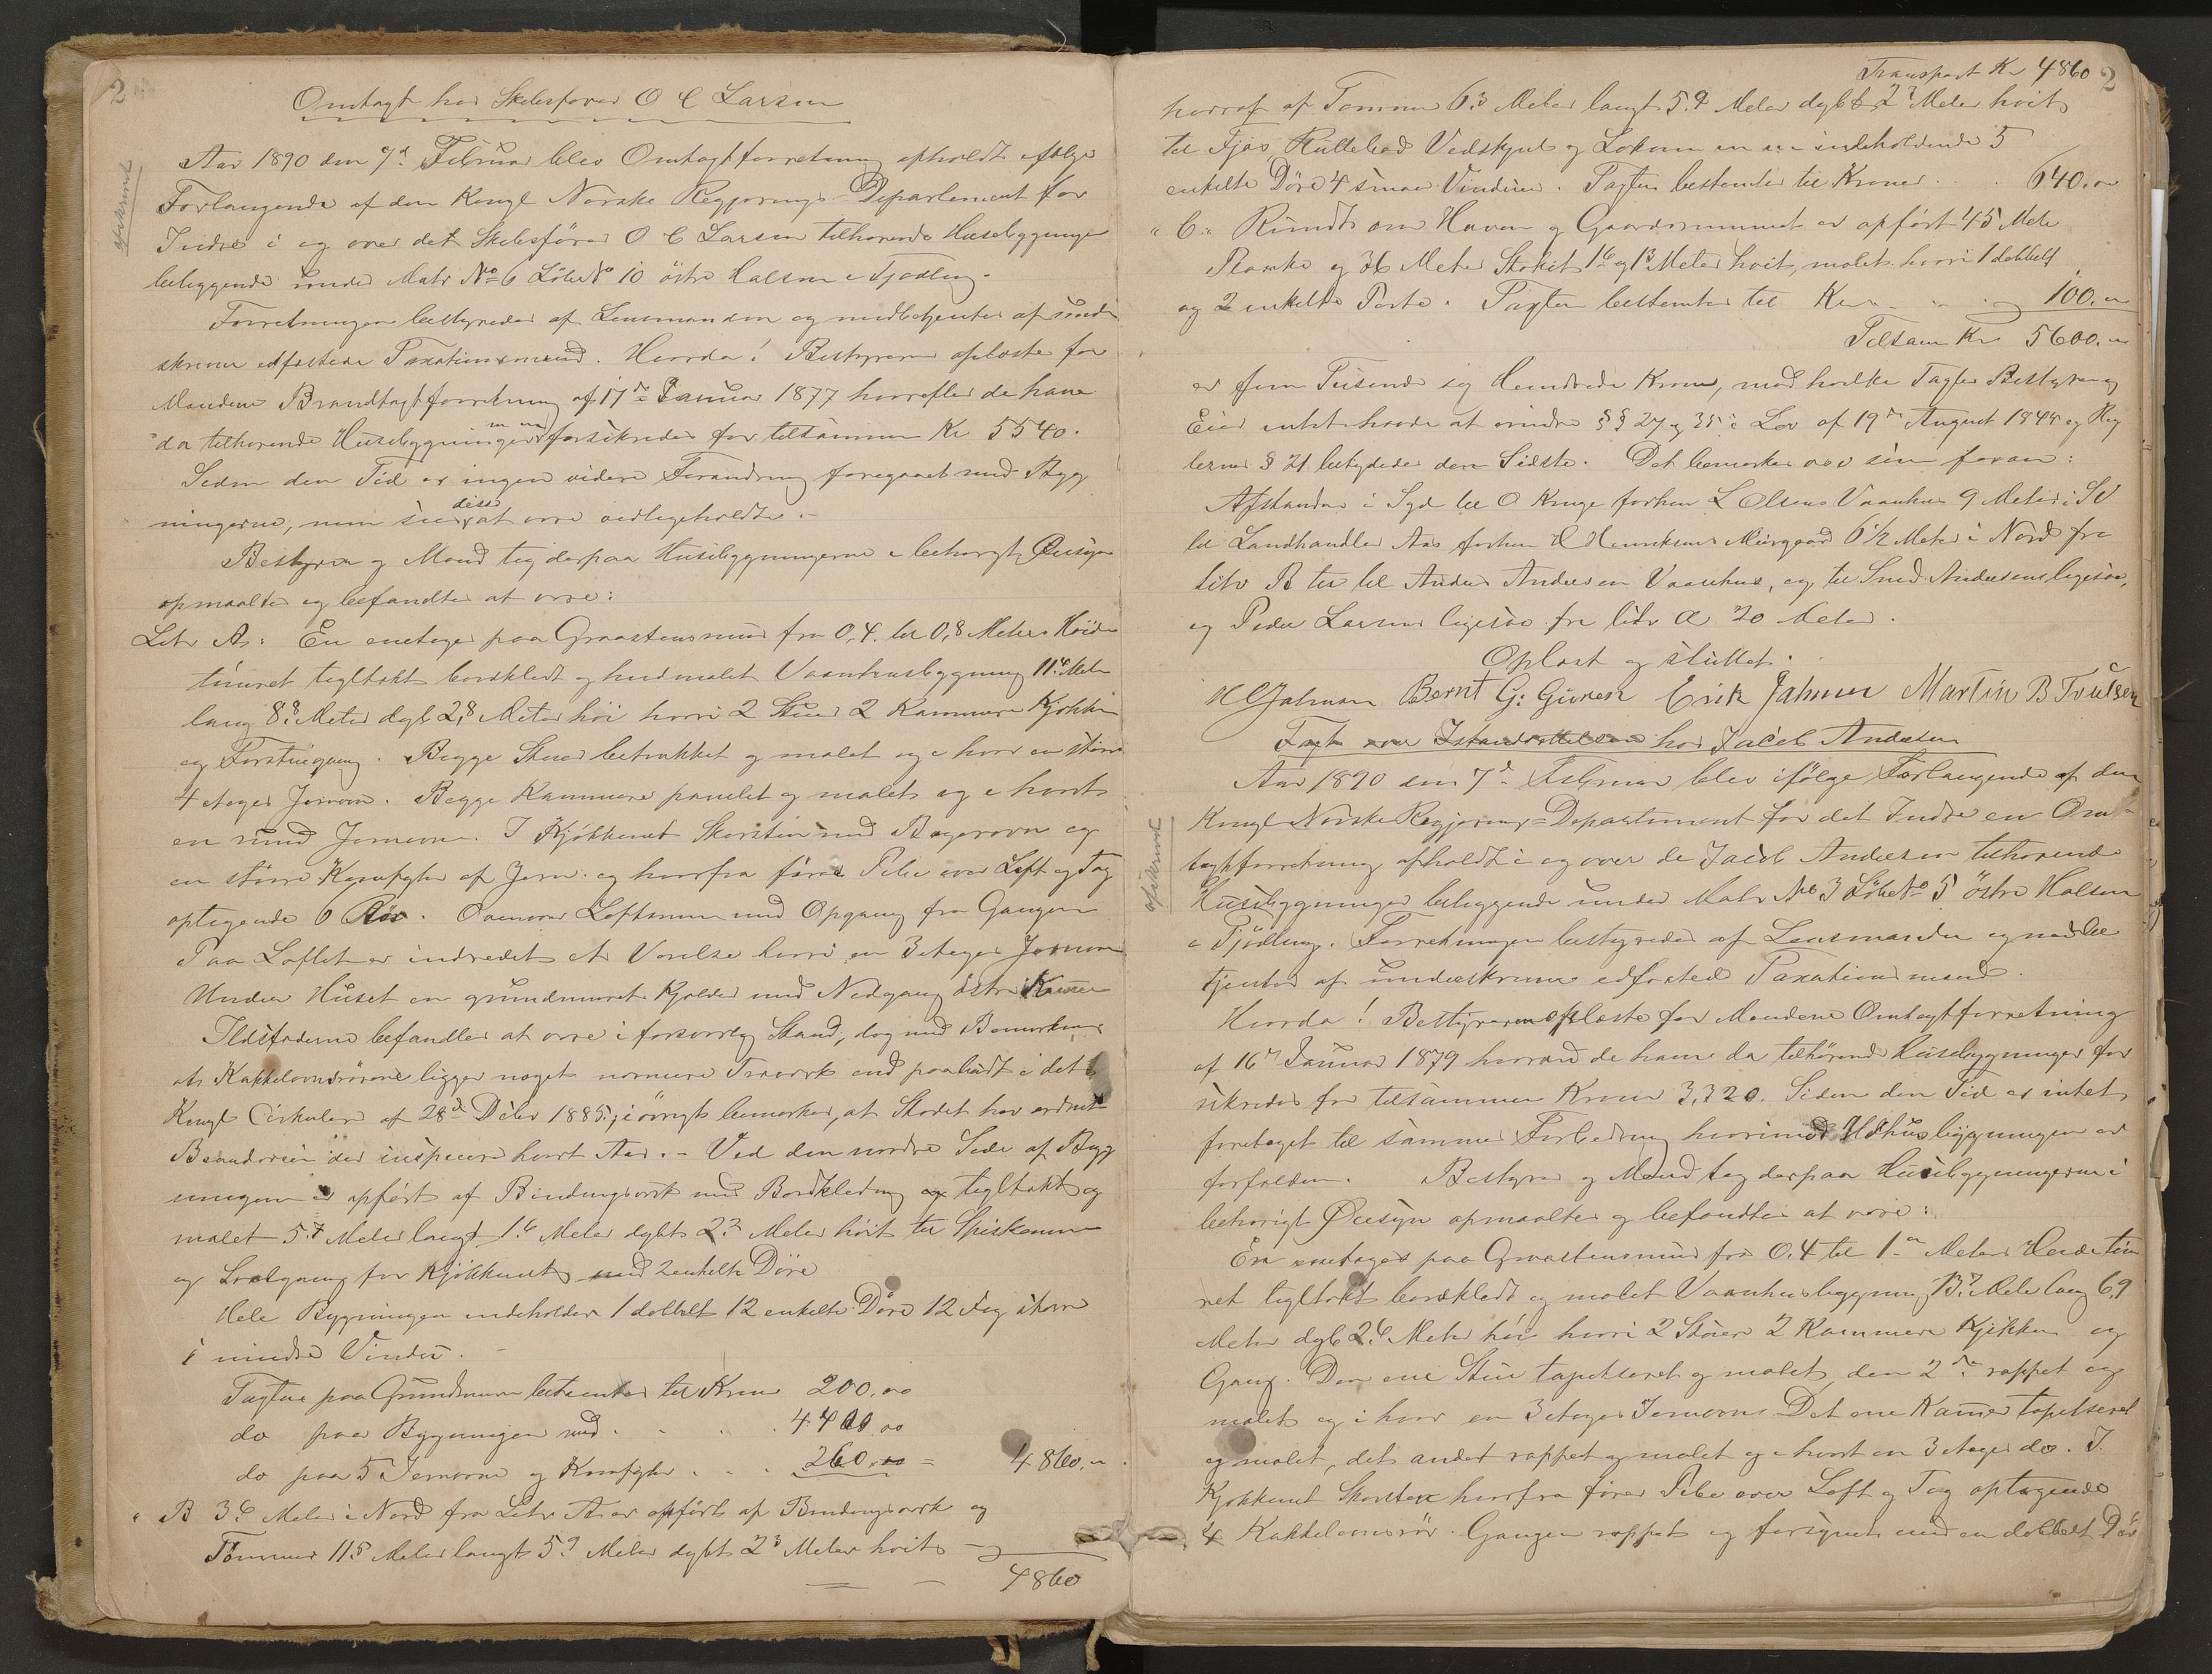 2
Omtagt hos Skibsfører O C Larsen
afskrevet
Aar 1890 den 7de Februar blev Omtagtforretning afholdt ifølge
Forlangende af den Kongl Norske Regjerings Departement for
Indre i og over det Skibsfører O C Larsen tilhørende Husebygninger
beliggende under Matr No 6 Løbe No 10 østre Halsen i Tjødling.
Forretningen bestyredes af Lensmanden og medbetjentes af under
skrevne edfæstede Taxationsmænd. Hvorda! Bestyreren oplæste for
Mændene Brandtagtforretning af 17de Januar 1877 hvorefter de ham
da tilhørende Husebygninger forsikredes for tilsammen Kr 5540.
Siden den Tid er ingen videre Forandring foregaaet med Byg
ningerne, men disse at være vedligeholdte.
Bestyrer og Mænd tog derpaa Husebygningerne i behørigt Øiesyn
opmaalte og befandtes at være:
Litr A: En enetages paa Graastensmur fra 0,4 til 0,8 Meters Høide
tømret tegltækt bordklædt og hvidmalet Vaanhusbygning 11.6 Meter
lang 8.8 Meter dyb 2,8 Meter høi hvori 2 Stuer 2 Kammere Kjøkken
og Forstuegang. Begge Stuer betrukket og malet og i hver en større
4 etages Jernovn. Begge Kammere panelet og malet og i hvert
en rund Jernovn. I Kjøkkenet Skorsten med Bagerovn og
en større Komfyr af Jern og hvorfra fører Pibe over Loft og Tag
optagende 6 Rør. Ovenover Loftsrum med Opgang fra Gangen
Paa Loftet er indredet et Værelse hvori en 3 etages Jernovn
Under Huset en grundmuret Kjelder med Nedgang østre Kamer
Ildstederne befandtes at være i forsvarlig Stand, dog med Bemærkning
at Kakkelovnsrørene ligger noget nærmere Træværk end paabudt i det
Kongl Cirkulær af 28de Debr 1885; iøvrigt bemærkes, at Stedet har ordnet
Brandvæsen der inspicere hvert Aar. - Ved den nordre Side af Byg
ningen er opført af Bindingsverk med Bordklædning og tegltækt og
malet 5.7 Meter langt 1.6 Meter dybt 2.2 Meter høit til Spiskammer
og Svalgang for Kjøkkenet med 2 enkelte Døre
Hele Bygningen indeholder 1 dobbelt 12 enkelte Døre 12 Fag større
i mindre Vindu.
Tagten paa Grundmuren bestemtes til Kroner 200,00
do paa Bygningen med . . . 4400,00
do paa 5 Jernovne og Komfyr . . . 260,00 = 4860,00
" B 3.6 Meter i Nord fra Litr A er opført af Bindingsverk og
Tømmer 11.5 Meter langt 5.9 Meter dybt 2.3 Meter høit
4860
Transport Kr 4860
2
hvoraf af Tømmer 6.3 Meter langt 5.9 Meter dybt 2.3 Meter høit
til Fjøs, Vedskjul og Lokum indeholdende 5
enkelte Døre 4 smaa Vinduer. Tagten bestemtes til Kroner . . 640,00
" C " Rundt om Haven og Gaardsrummet er opført 45 Meter
Planke og 36 Meter Stakit 1.6 og 1.3 Meter høit, malet hvori 1 dobbelt
og 2 enkelte Porte. Tagten bestemtes til Kr . . . 100,00
Tilsam Kr 5600,00
er fem Tusende sex Hundrede Kroner, mod hvilke Tagter Bestyrer og
Eier intet havde at erindre §§ 27 og 35 i Lov af 19de August 1845 og Reg
lernes § 21 betydedes den Sidste. Det bemærkes at være som foran:
Afstanden i Syd til O Kruge forhen L Olsens Vaanhus 9 Meter i SV
til Landhandler Aas forhen Henriksens Murgaard 6½ Meter i Nord fra
litr B til Anders Andersen Vaanhus, og til Smed Andersens ligesaa,
og Peder Larsens ligesaa fra litr A 20 Meter.
Oplæst og sluttet.
H C Jahnsen Bernt G: Guresen Erik Jahnsen Martin B Trulsen
Tagt over Istandsettelsen hos Jacob Andersen
afskrevet
Aar 1890 den 7de Februar blev ifølge Forlangende af den
Kongl Norske Regjerings-Departement for det Indre en Om-
tagtforretning afholdt i og over de Jacob Andersen tilhørende
Husebygninger beliggende under Matr No 3 Løbe No 5 østre Halsen
i Tjødling. Forretningen bestyredes af Lensmanden og medbe
tjentes af underskrevne edfæstede Taxationsmænd.
Hvorda! Bestyreren oplæste for Mændene Omtagtforretning
af 16de Januar 1879 hvorved de ham da tilhørende Husebygninger for
sikredes for tilsammen Kroner 3,320. Siden den Tid er intet
foretaget til sammes Forbedring hvorimod Udhusbygningen er
forfalden. Bestyrer og Mænd tog derpaa Husebygningerne i
behørigt Øiesyn opmaalte og befandtes at være:
En enetages paa Graastensmur fra 0,4 til 1 Meters Høide tøm
ret tegltækt bordklædt og malet Vaanhusbygning 13.2 Meter lang 6,9
Meter dyb 2.6 Meter høi hvori 2 Stuer 2 Kammere Kjøkken og
Gang. Den ene Stue tapetseret og malet, den 2den rappet og
malet og i hver en 3 etages Jernovn. Det ene Kamer tapetseret
og malet, det andet rappet og malet og i hvert en 3 etages do. I
Kjøkkenet Skorsten hvorfra fører Pibe over Loft og Tag optagende
4 Kakkelovnsrør. Gangen rappet og forsynet med en dobbelt Dør